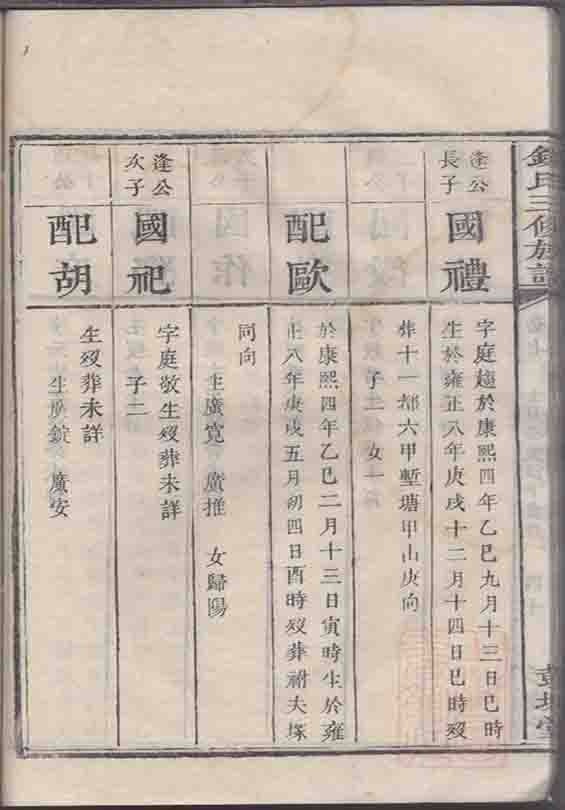 氏三修族譜
逢公
長子
國禮
字庭趨於康熙四年乙巳九月十三日巳時
生於雍正八年庚戌十二月十四日巳時歿
葬十一都六甲塹塘甲山庚向
子二 女一
配歐
於康熙四年乙巳二月十三日寅時生於雍
正八年庚戌五月初四日酉時歿葬祔夫塚
同向
生廣寬 廣推 女歸陽
逢公
次子
國祀
字庭敬生歿葬未詳
子二
配胡
生歿葬未詳
生廣錠 廣安